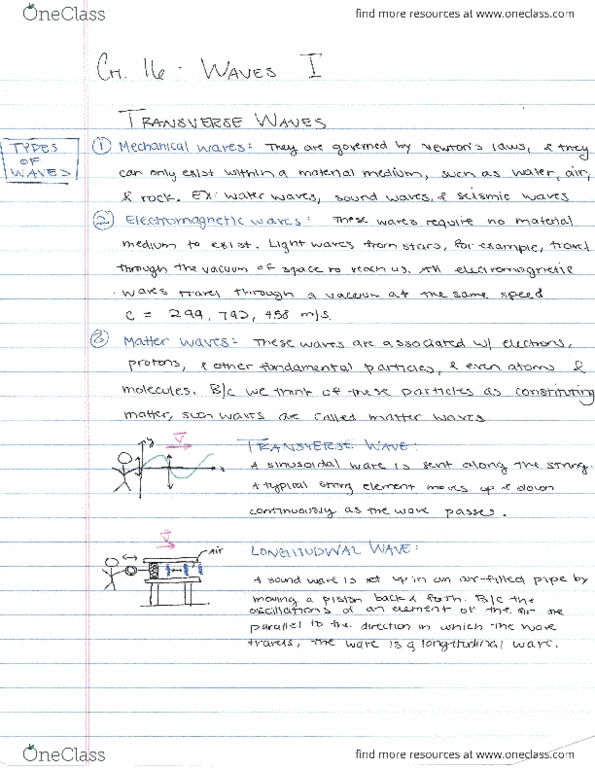 OneClass
find more resources at www.oneclass.com
CH. 16 - WAVES I
TRANSVERSE WAVES
TYPES OF WAVES
① Mechanical waves: They are governed by Newton's laws, & they
can only exist within a material medium, such as water, air,
& rock. EX: water waves, sound waves, & seismic waves
② Electromagnetic waves: These waves require no material
medium to exist. Light waves from stars, for example, travel
through the vacuum of space to reach us. All electromagnetic
waves travel through a vacuum at the same speed
c = 299,792,458 m/s.
③ Matter waves: These waves are associated w/ electrons,
protons, & other fundamental particles, & even atoms &
molecules. B/c we think of these particles as constituting
matter, such waves are called matter waves
y
v
TRANSVERSE WAVE:
A sinusoidal wave is sent along the string.
A typical string element moves up & down
continuously as the wave passes.
v
air
LONGITUDINAL WAVE:
A sound wave is set up in an air-filled pipe by
moving a piston back & forth. B/c the
oscillations of an element of the air are
parallel to the direction in which the wave
travels, the wave is a longitudinal wave.
OneClass
find more resources at www.oneclass.com